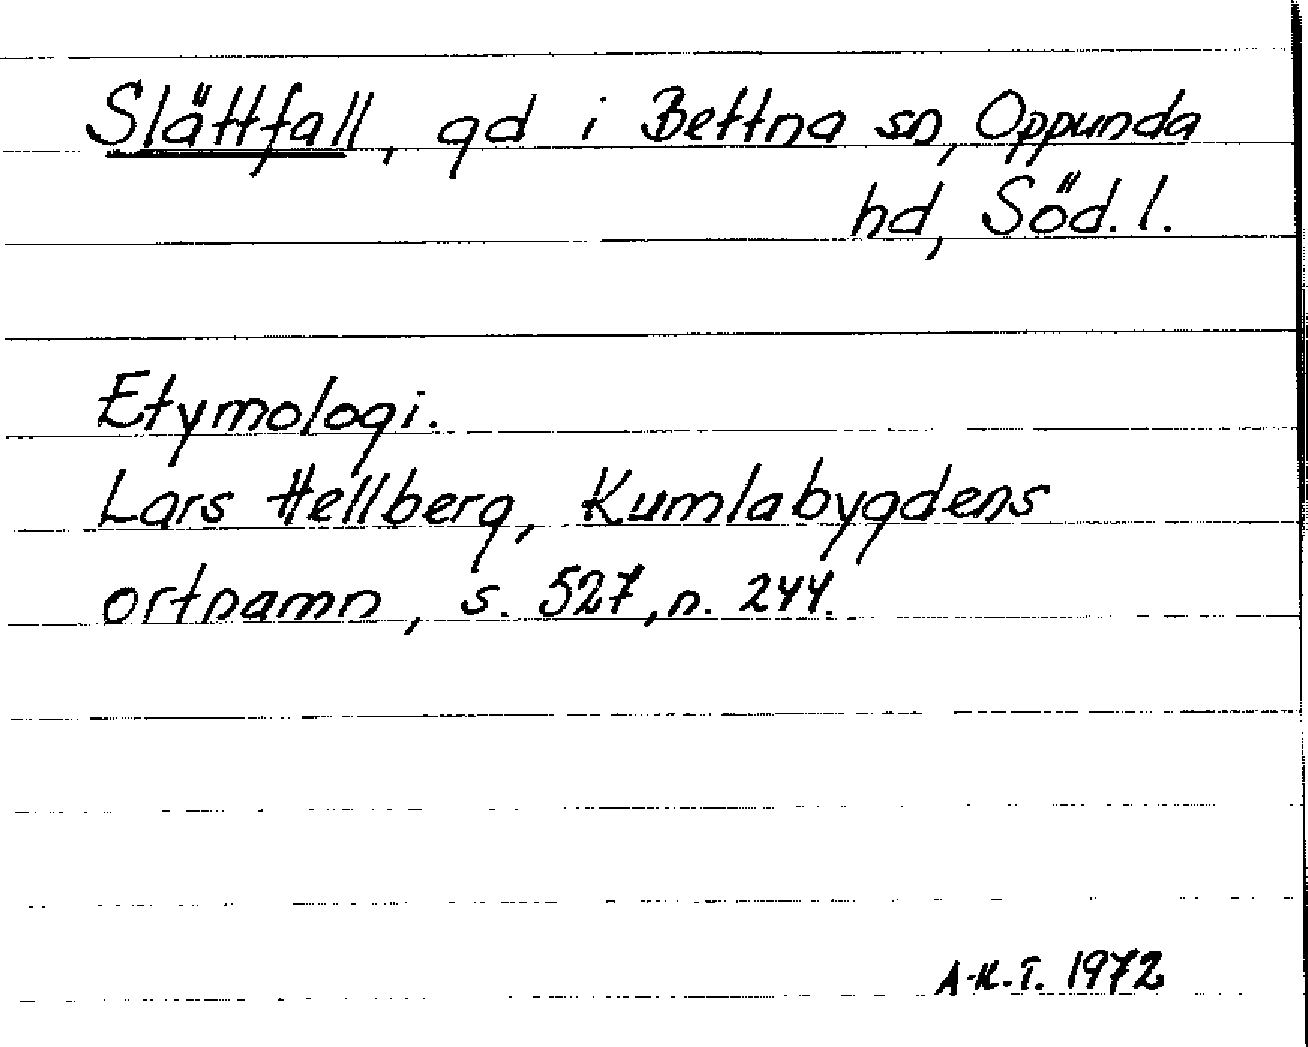 Slättfall, gd i Bettna sn, Oppunda
hd, Söd.l.
Etymologi.
Lars Hellberg, Kumlabygdens
ortnamn, s. 527, n. 244.
A-K.T. 1972